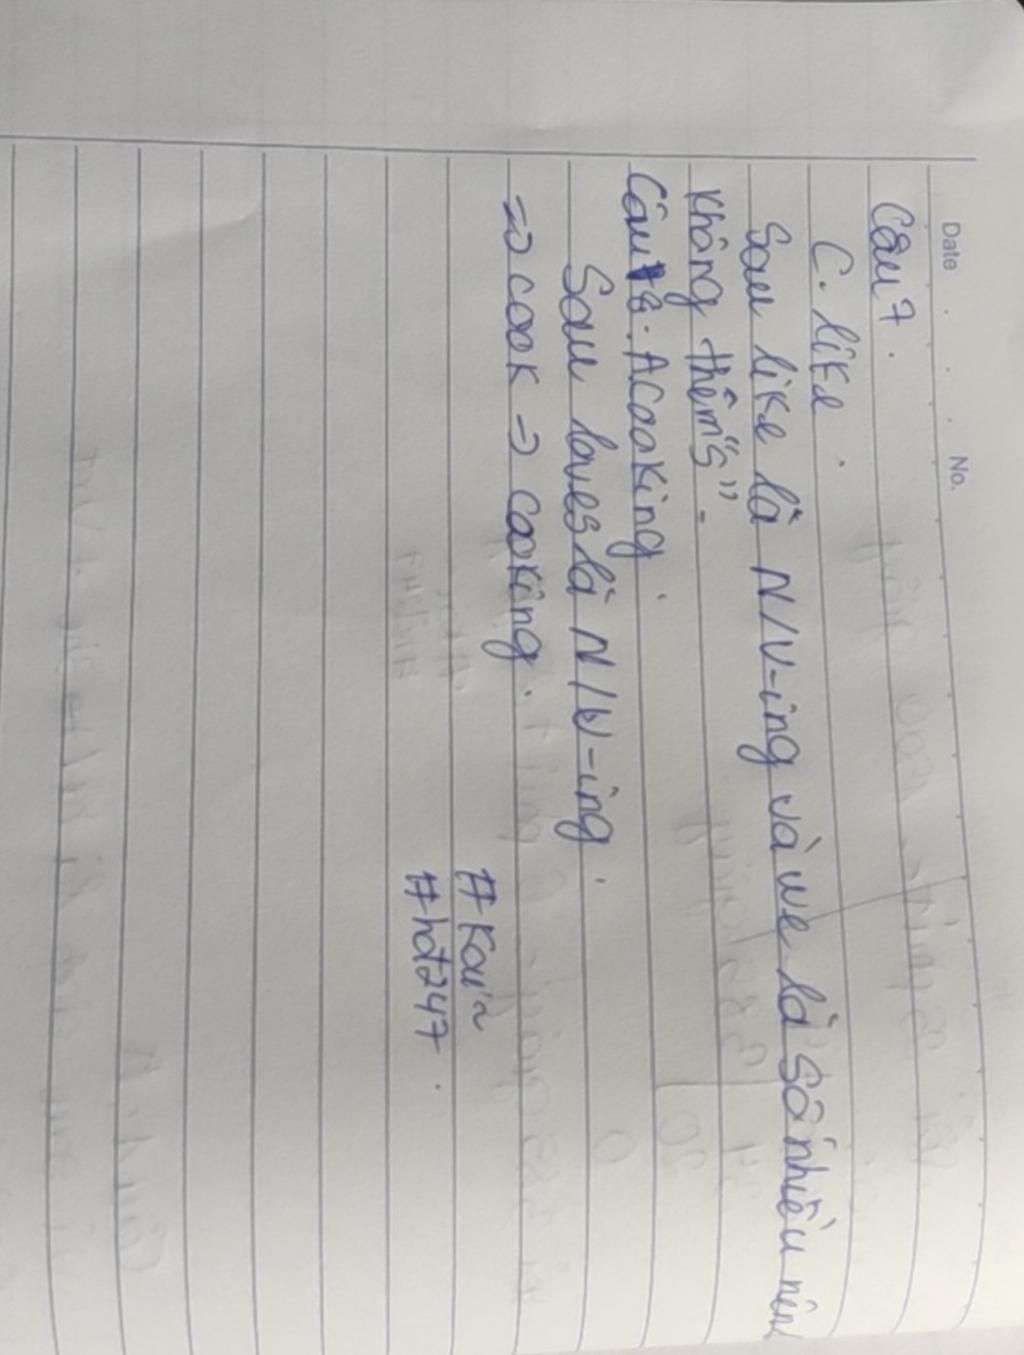 Date No.
Câu 7.
C. like.
Sau like là N/V-ing và we là số nhiều nên
không thêm "s".
Câu 8: A cooking.
Sau loves là N/V-ing.
=> cook => cooking.
#Kou~
#hđ247.